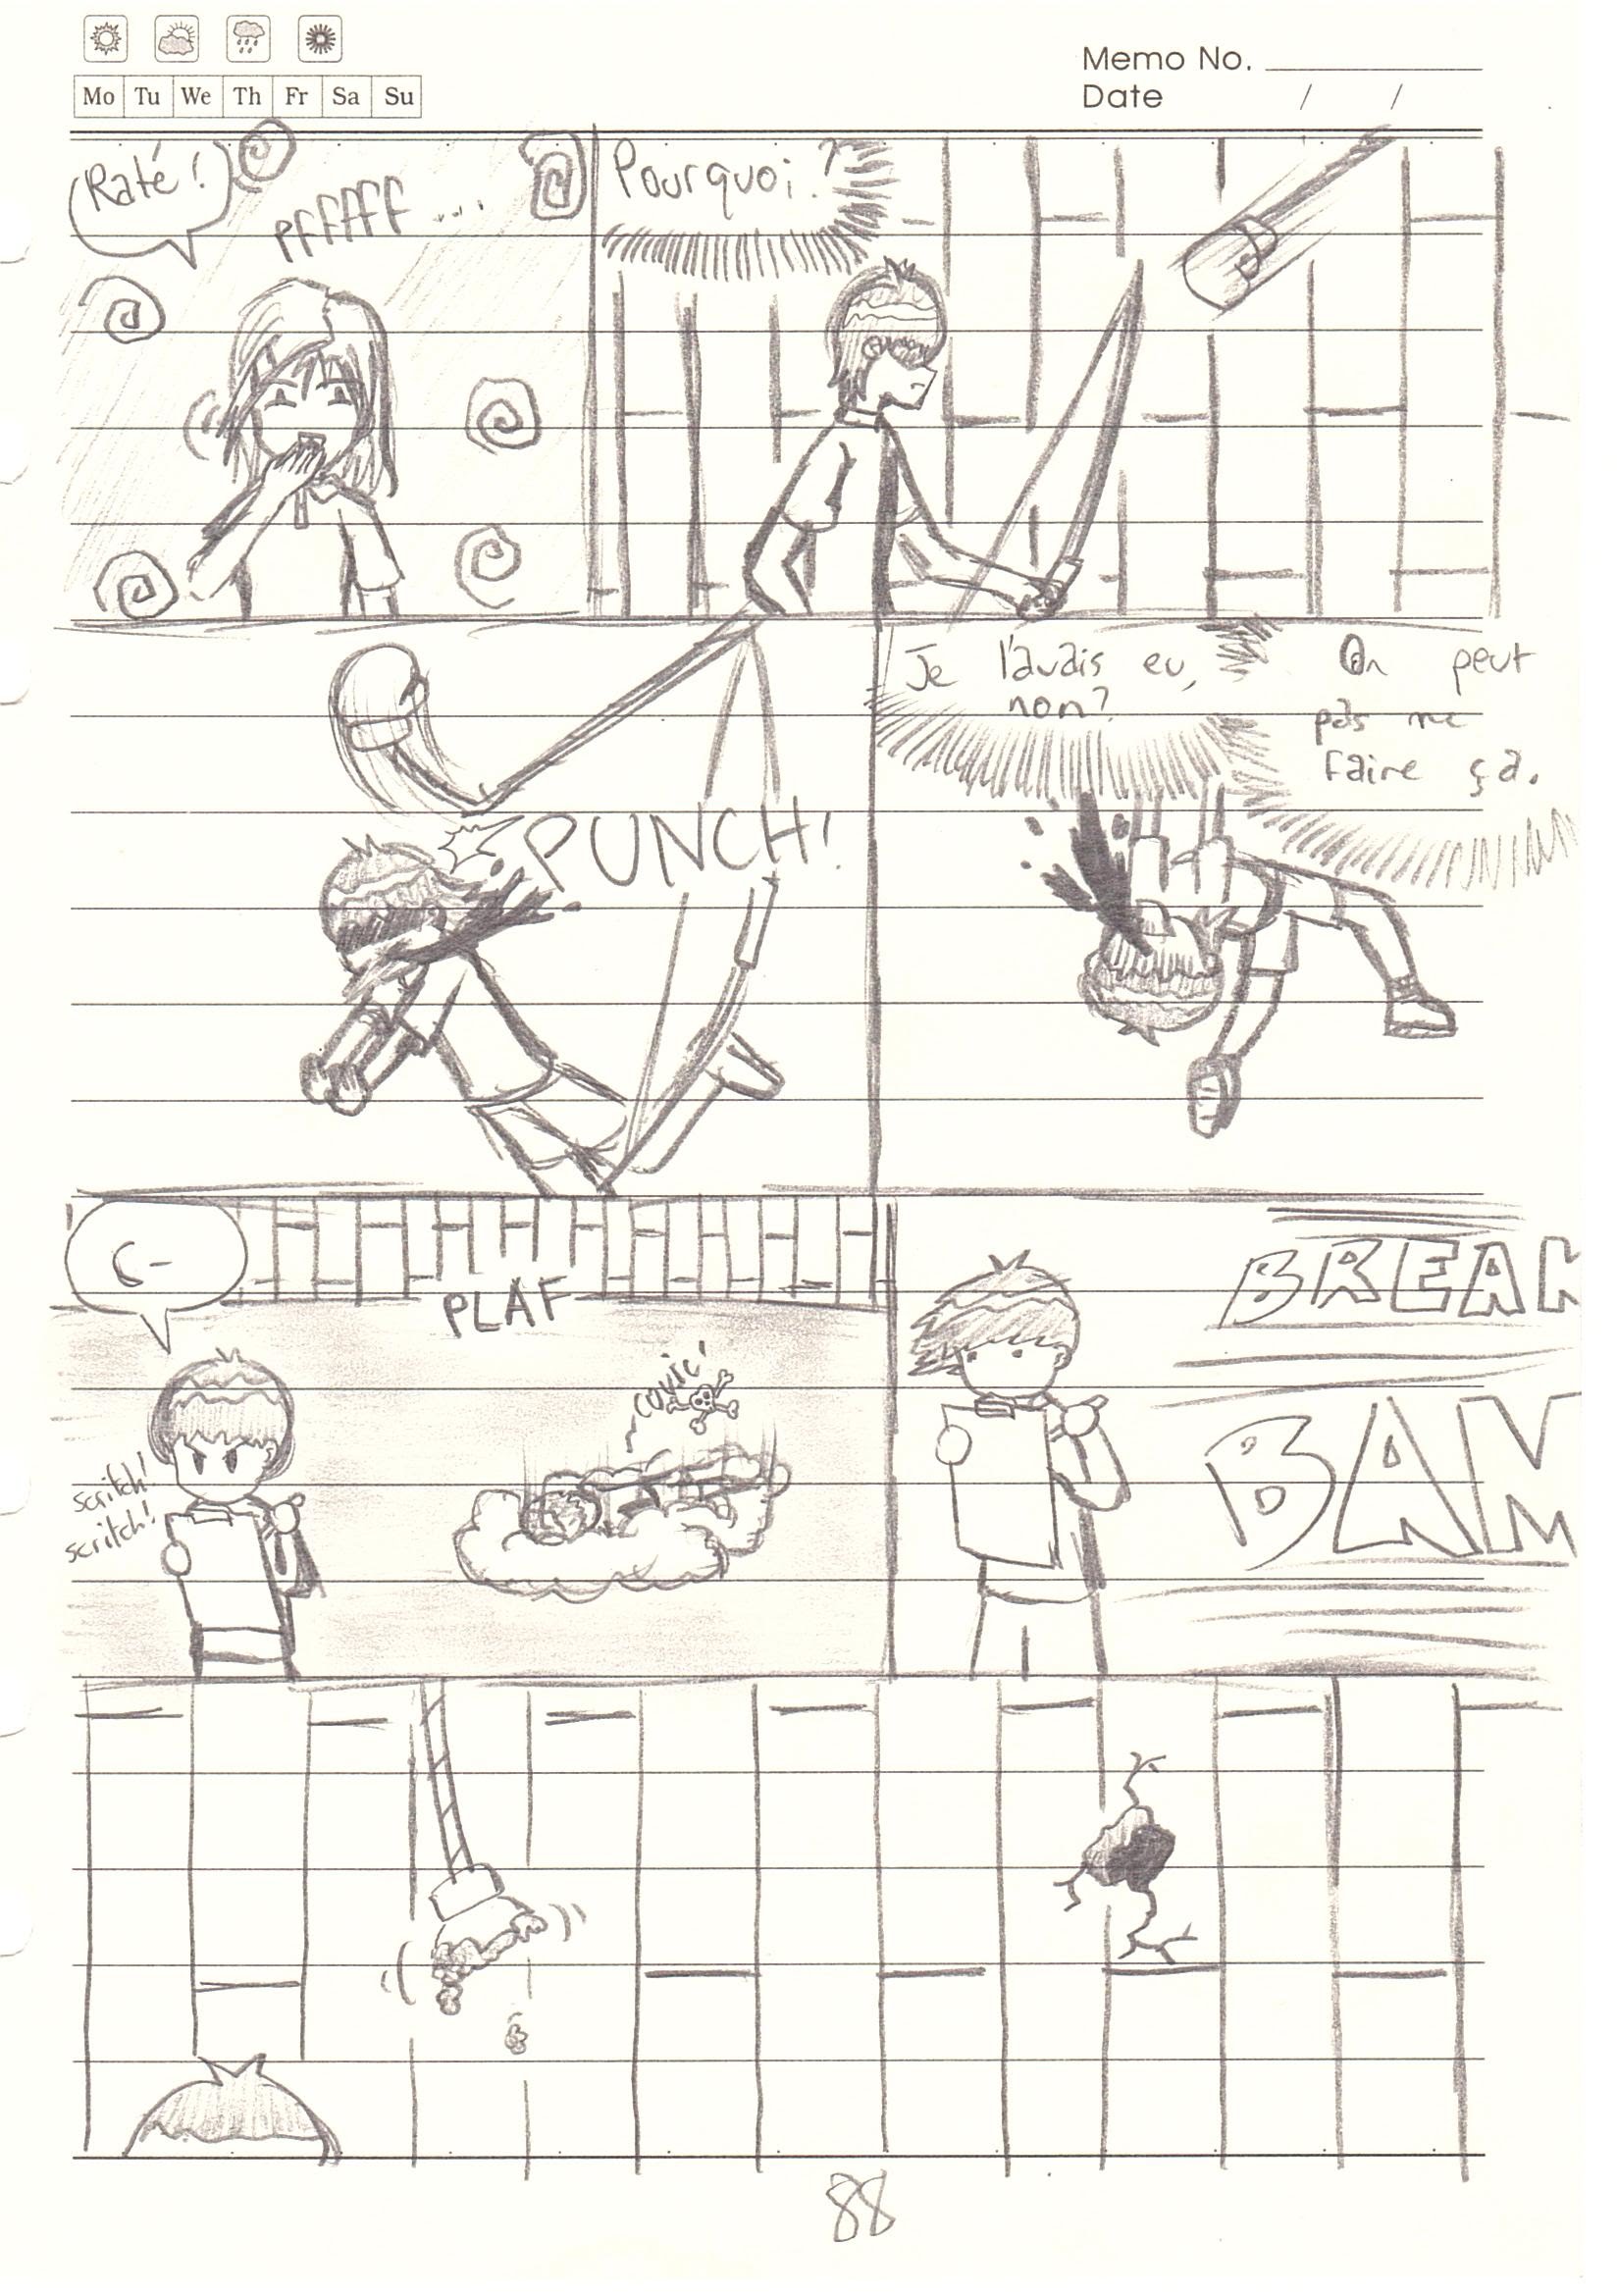 Mo Tu We Th Fr Sa Su
Memo No.
Date / /
Raté!
Pffffff...
Pourquoi?
PUNCH!
Je l'avais eu,
non?
On peut
pas me
faire ça.
C-
PLAF
couic!
scritch!
scritch!
BREAK
BAM
88